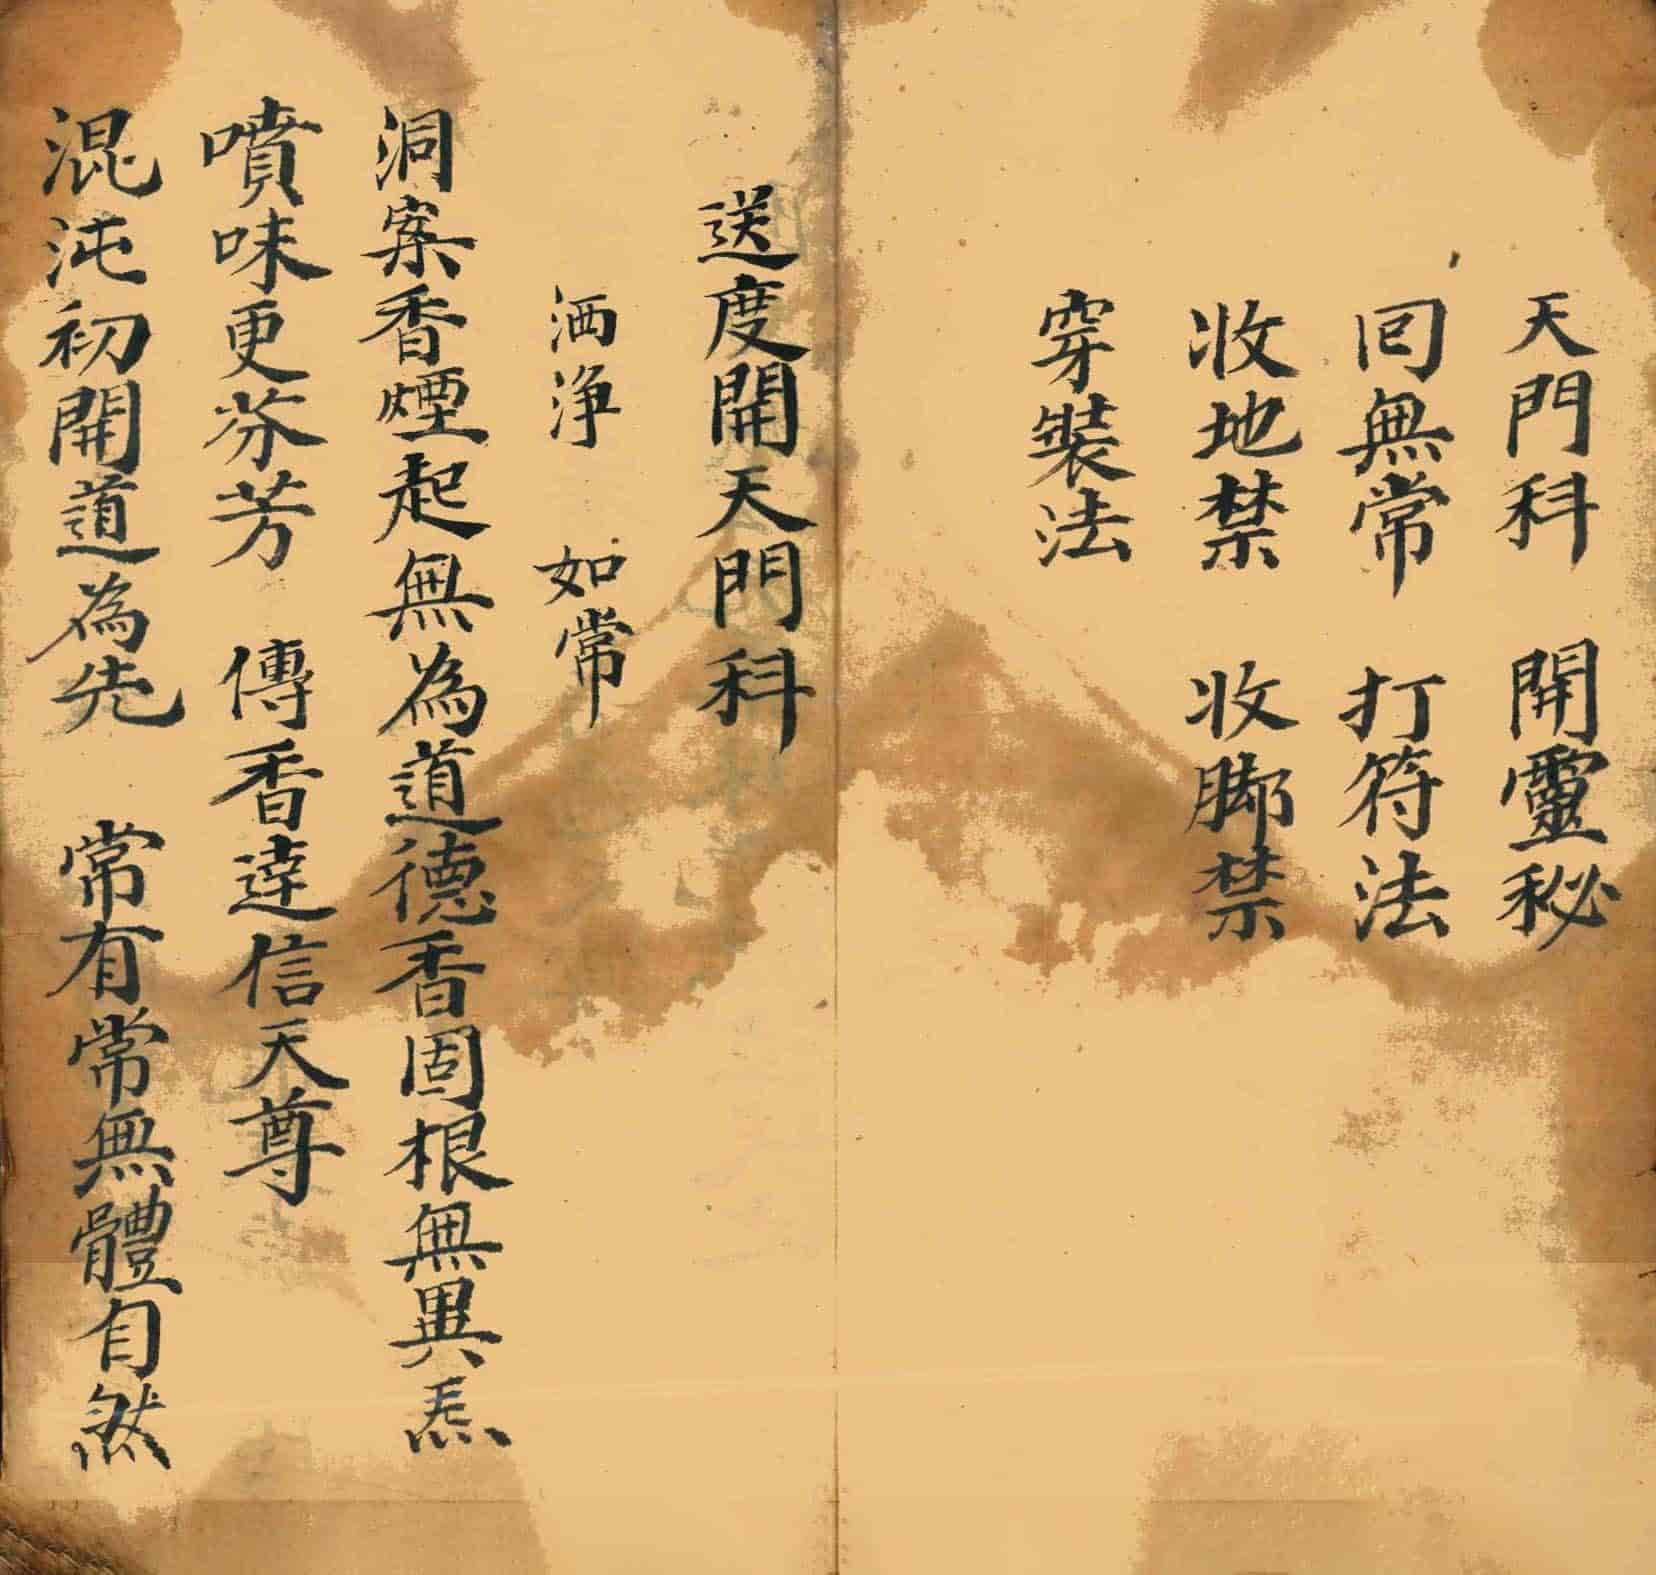 天門科　開靈秘
回無常　打符法
收地禁　收脚禁
穿裝法
送度開天門科
洒淨　如常
洞案香煙起無為道德香固根無異炁
噴味更芬芳　傳香達信天尊
混沌初開道為先　常有常無體自然